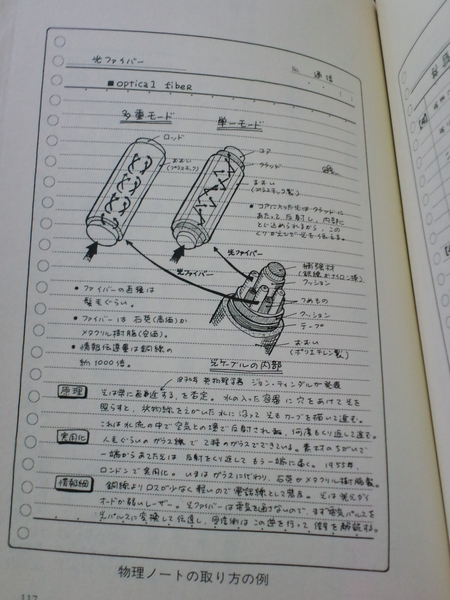 光ファイバー
No. 通信
■optical fiber
多重モード
単一モード
ロッド
おおい
(プラスチック製)
コア
クラッド
おおい
(プラスチック製)
• コアに入った光はクラッドに
あたって反射し、内部に
とじ込められるから、この
くり返しで光を伝える。
光ファイバー
光ファイバー
補強材
(鋼線かナイロン棒)
クッション
つめもの
クッション
テープ
おおい
(ポリエチレン製)
光ケーブルの内部
• ファイバーの直径は
髪毛ぐらい。
• ファイバーは石英(高価)か
メタクリル樹脂(安価)。
• 情報伝達量は銅線の
約1000倍。
1870年 英物理学者 ジョン・ティンダルが発表
原理
光は常に直進する、を否定。水の入った容器に穴をあけて光を
照らすと、放物線をえがいた水に沿って光もカーブを描いて進む。
これは水流の中で空気との境で反射され、何度もくり返して進む。
実用化
人毛ぐらいのガラス線で2種のガラスでできている。素材のちがいで
一端から入った光は反射をくり返してもう一端に届く。1955年、
ロンドンで実用化。いまはガラスに代わり、石英かメタクリル樹脂製。
情報網
銅線よりロスが少なく軽いので電話線として普及。光は発光ダイ
オードか弱いレーザー。光ファイバーは電気を通さないので、まず電気パルスを
光パルスに変換して伝達し、受信側はこの逆を行って信号を解読する。
物理ノートの取り方の例
117